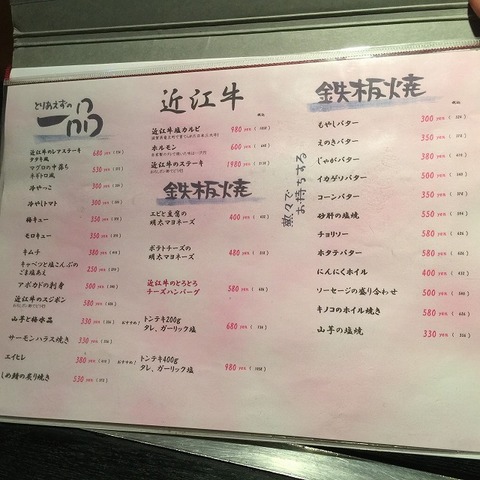 とりあえずの
一品
近江牛のレアステーキ
タタキ風 680 yen
マグロの中落ち
ネギトロ風 530 yen
冷やっこ 300 yen
冷やしトマト 300 yen
梅キュー 350 yen
モロキュー 350 yen
キムチ 380 yen
キャベツと塩こんぶの
ごま塩あえ 250 yen
アボカドの刺身 300 yen
近江牛のスジポン 380 yen
山芋と梅水晶 330 yen
サーモンハラス焼き 330 yen
エイヒレ 380 yen
しめ鯖の炙り焼き 530 yen
近江牛
近江牛塩カルビ 980 yen
ホルモン 600 yen
近江牛のステーキ 1980 yen
鉄板焼
エビと豆腐の
明太マヨネーズ 400 yen
ポテトチーズの
明太マヨネーズ 480 yen
近江牛のとろとろ
チーズハンバーグ 580 yen
おすすめ! トンテキ200g
タレ、ガーリック塩 680 yen
おすすめ! トンテキ400g
タレ、ガーリック塩 980 yen
鉄板焼
もやしバター 300 yen
えのきバター 350 yen
じゃがバター 350 yen
イカゲソバター 500 yen
コーンバター 350 yen
砂肝の塩焼 350 yen
チョリソー 580 yen
ホタテバター 580 yen
にんにくホイル 400 yen
ソーセージの盛り合わせ 500 yen
キノコのホイル焼き 580 yen
山芋の塩焼 330 yen